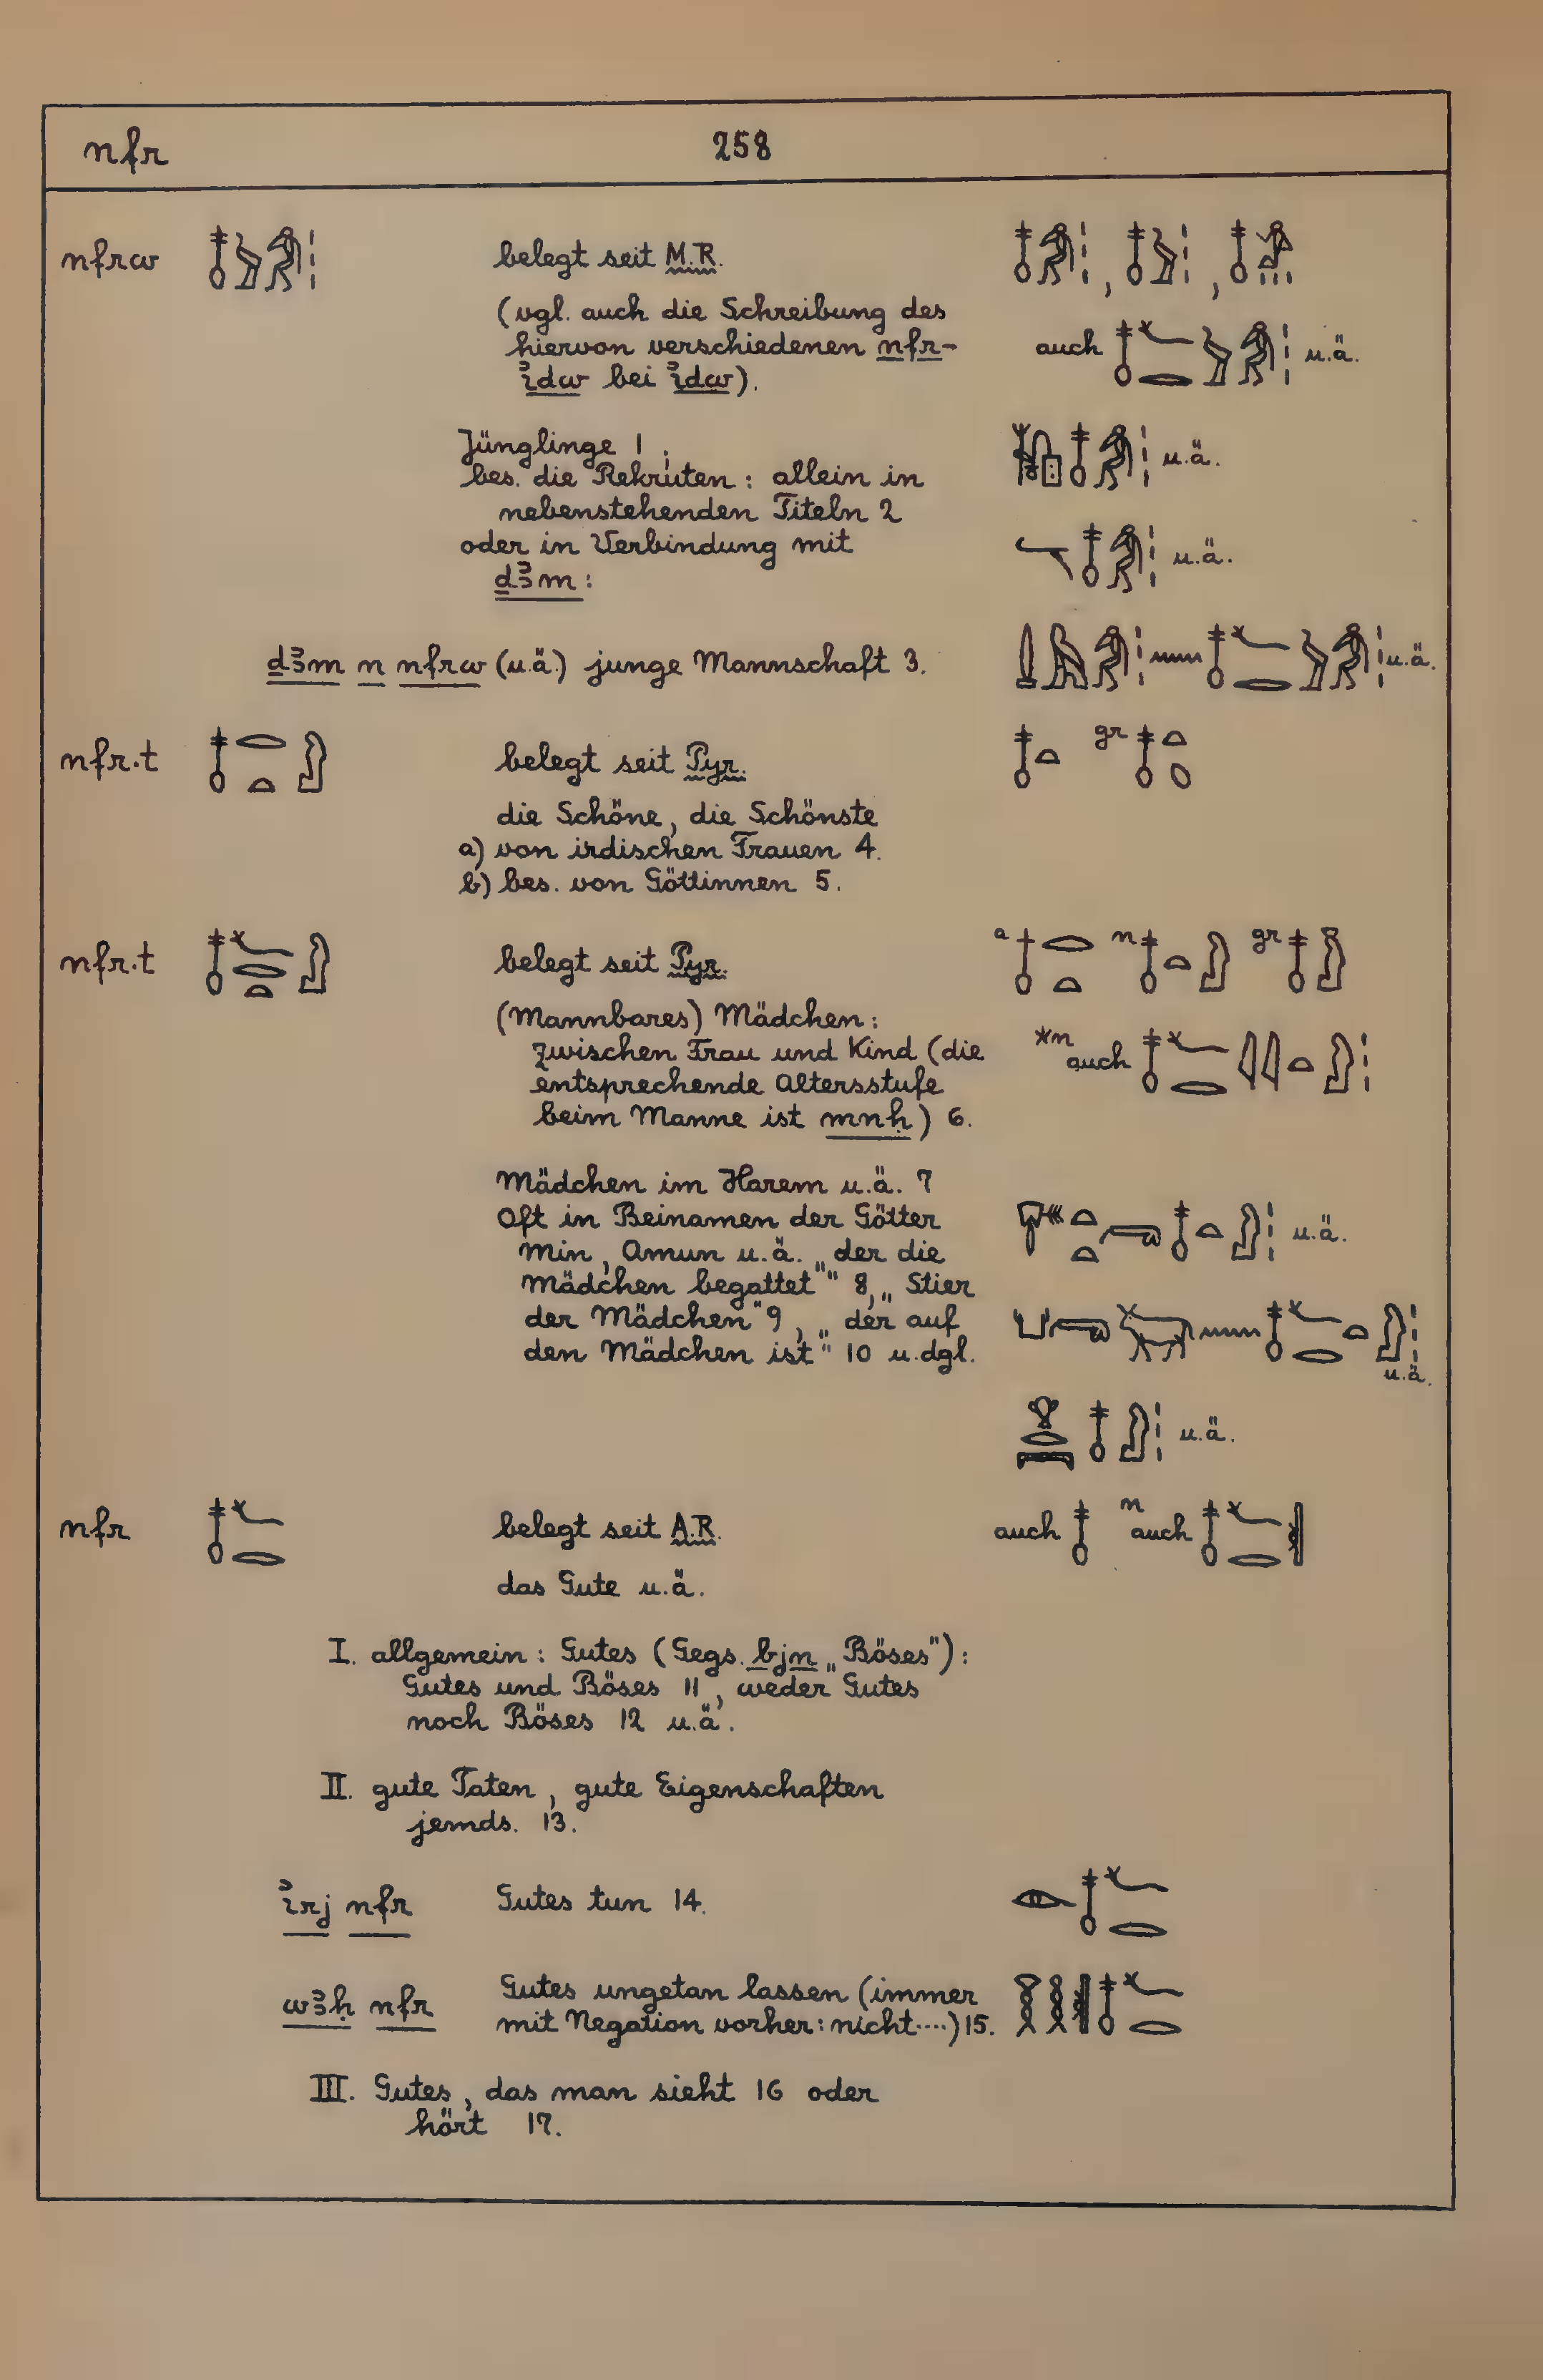 nfr 258
nfrw belegt seit M.R.
(vgl. auch die Schreibung des
hiervon verschiedenen nfr- auch u.ä.
ı͗dw bei ı͗dw).
Jünglinge 1;
u.ä.
bes. die Rekruten: allein in
nebenstehenden Titeln 2
oder in Verbindung mit u.ä.
ḏꜣm:
ḏꜣm n nfrw (u.ä.) junge Mannschaft 3. u.ä.
nfr.t belegt seit Pyr. gr
die Schöne, die Schönste
a) von irdischen Frauen 4.
b) bes. von Göttinnen 5.
nfr.t belegt seit Pyr. a n gr
(Mannbares) Mädchen:
zwischen Frau und Kind (die *n auch
entsprechende Altersstufe
beim Manne ist mnḥ) 6.
Mädchen im Harem u.ä. 7
Oft in Beinamen der Götter u.ä.
Min, Amun u.ä. „der die
Mädchen begattet" 8, „Stier
der Mädchen" 9, „der auf
den Mädchen ist" 10 u.dgl. u.ä.
u.ä.
nfr belegt seit A.R. auch n auch
das Gute u.ä.
I. allgemein: Gutes (Gegs. bjn „Böses"):
Gutes und Böses 11, weder Gutes
noch Böses 12 u.ä.
II. gute Taten, gute Eigenschaften
jemds. 13.
ı͗rj nfr Gutes tun 14.
wꜣḥ nfr Gutes ungetan lassen (immer
mit Negation vorher: nicht....) 15.
III. Gutes, das man sieht 16 oder
hört 17.